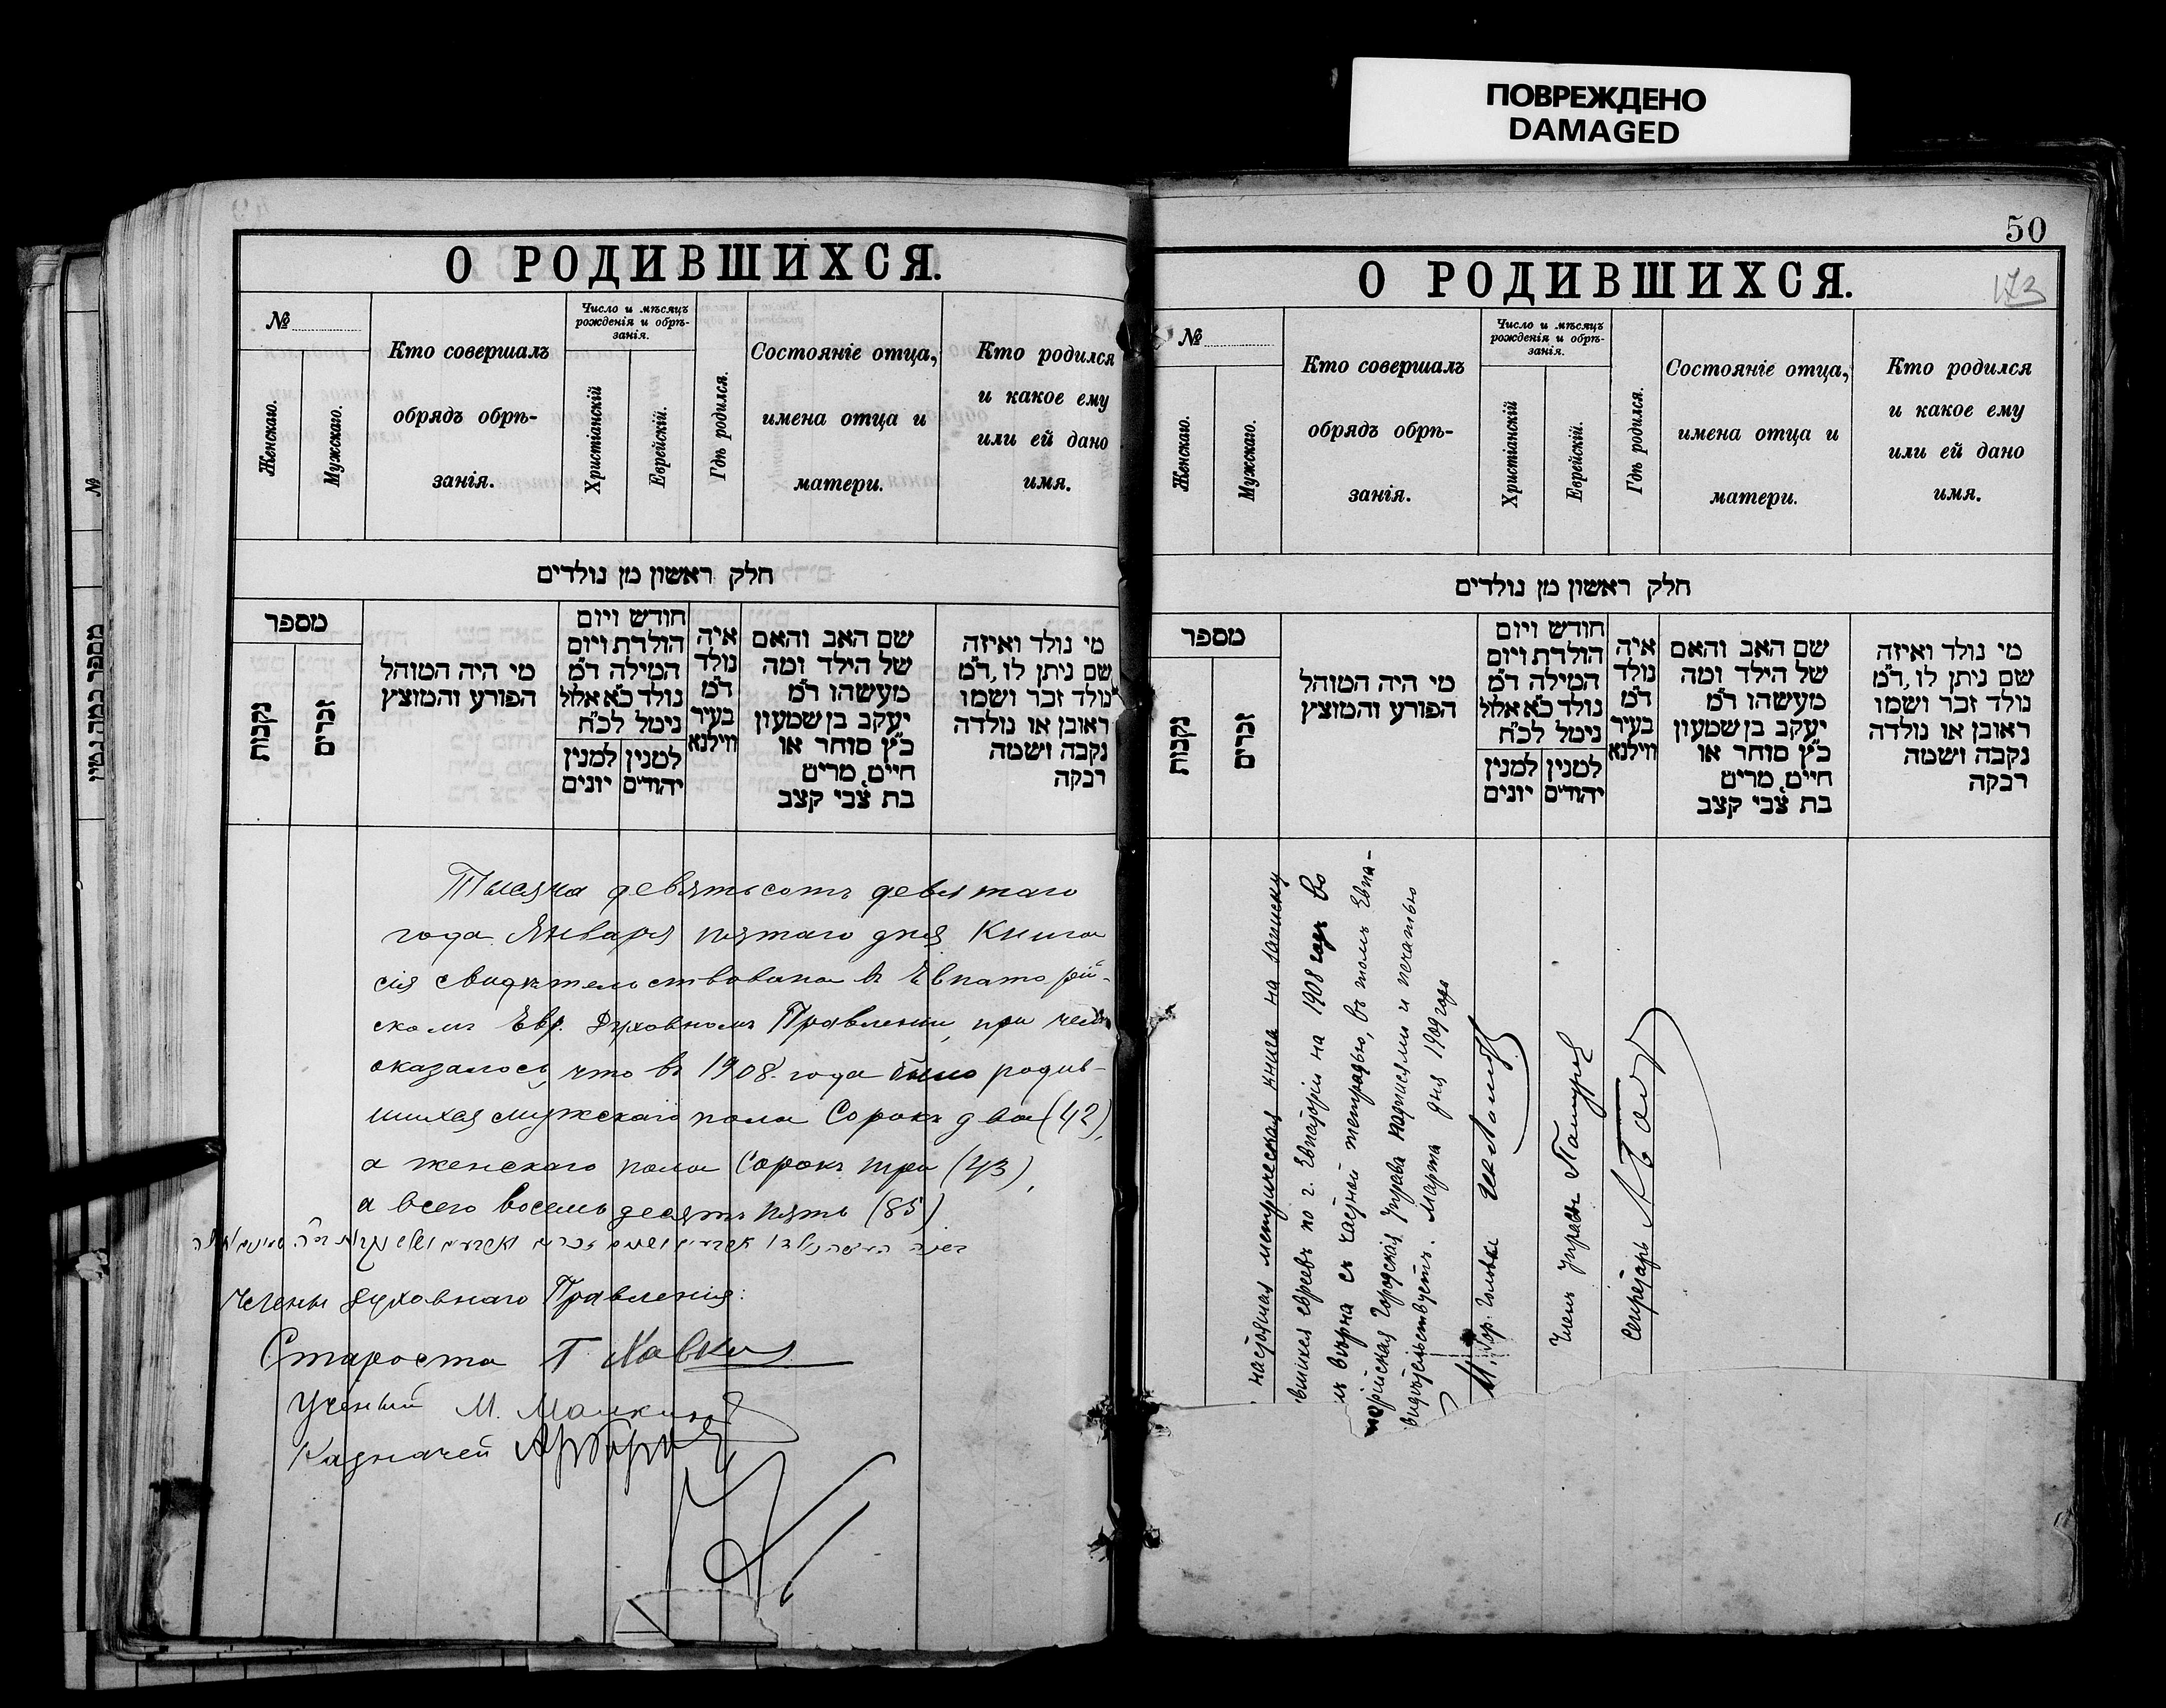 ПОВРЕЖДЕНО
DAMAGED
О РОДИВШИХСЯ.
№
Женскаго.
Мужскаго.
Кто совершалъ
обрядъ обрѣ-
занія.
Число и мѣсяцъ
рожденія и обрѣ-
занія.
Христіанскій
Еврейскій.
Гдѣ родился.
Состояніе отца,
имена отца и
матери.
Кто родился
и какое ему
или ей дано
имя.
חלק ראשון מן נולדים
מספר
נקבות
זכרים
מי היה המוהל
הפורע והמוצץ
חודש ויום
הולדת ויום
המילה ד״מ
נולד כ״א אלול
נימל לכ״ח
למנין למנין
יהודים יונים
איה
נולד
ד״מ
בעיר
ווילנא
שם האב והאם
של הילד ומה
מעשהו ד״מ
יעקב בן שמעון
כ״ץ סוחר או
חיים, מרים
בת צבי קצב
מי נולד ואיזה
שם ניתן לו, ד״מ
נולד זכר ושמו
ראובן או נולדה
נקבה ושמה
רבקה
Тысяча девятьсотъ девятаго
года Января пятаго дня Книга
сія свидѣтельствована въ Евпаторій-
скомъ Евр. Духовномъ Правленіи, при чемъ
оказалось, что въ 1908 года было родив-
шихся мужскаго пола Сорокъ два (42),
а женскаго пола Сорокъ три (43),
а всего восемьдесятъ пять (85)
Члены Духовнаго Правленія:
Староста Г. Хавкин
Ученый М.
Казначей
№
50
О РОДИВШИХСЯ.
173
№
Женскаго.
Мужскаго.
Кто совершалъ
обрядъ обрѣ-
занія.
Число и мѣсяцъ
рожденія и обрѣ-
занія.
Христіанскій
Еврейскій.
Гдѣ родился.
Состояніе отца,
имена отца и
матери.
Кто родился
и какое ему
или ей дано
имя.
חלק ראשון מן נולדים
מספר
נקבות
זכרים
מי היה המוהל
הפורע והמוצץ
חודש ויום
הולדת ויום
המילה ד״מ
נולד כ״א אלול
נימל לכ״ח
למנין למנין
יהודים יונים
איה
נולד
ד״מ
בעיר
ווילנא
שם האב והאם
של הילד ומה
מעשהו ד״מ
יעקב בן שמעון
כ״ץ סוחר או
חיים, מרים
בת צבי קצב
מי נולד ואיזה
שם ניתן לו, ד״מ
נולד זכר ושמו
ראובן או נולדה
נקבה ושמה
רבקה
настоящая метрическая книга на записку
вшихся евреевъ по г. Евпаторіи на 1908 годъ во
мъ вѣрна съ частной тетрадью, въ томъ Евпа-
торійская Городская Управа надписями и печатью
видѣтельствуетъ. Марта дня 1909 года
Гор. Головы
Членъ Управы
Секретарь